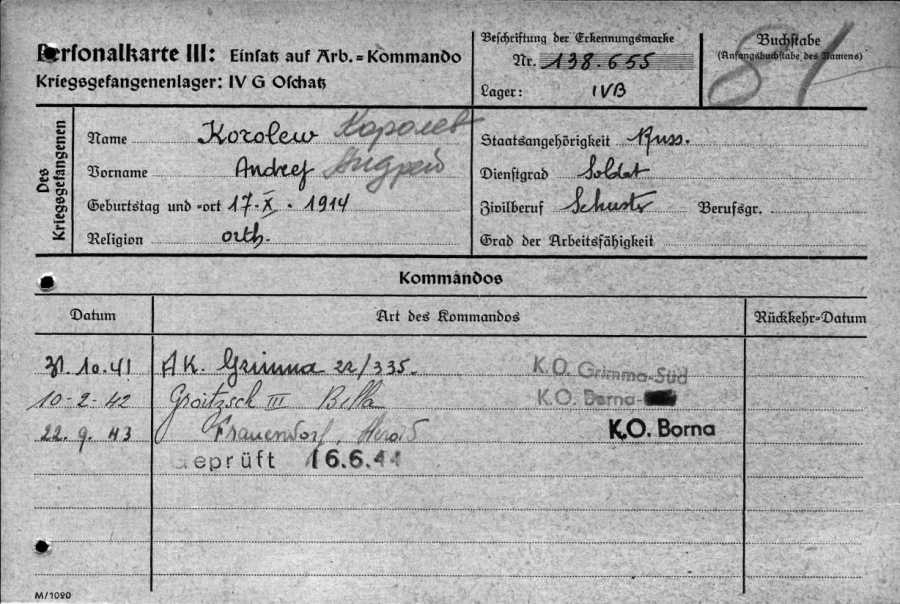 Personalkarte III: Einsatz auf Arb.=Kommando
Kriegsgefangenenlager: IV G Oschatz
Beschriftung der Erkennungsmarke
Nr. 138.655
Lager: IVB
Buchstabe
(Anfangsbuchstabe des Namens)
81
Des Kriegsgefangenen
Name Korolew Королев
Vorname Andrej Андрей
Geburtstag und -ort 17-X-1914
Religion orth.
Staatsangehörigkeit Russ.
Dienstgrad Soldat
Zivilberuf Schuster Berufsgr.
Grad der Arbeitsfähigkeit
Kommandos
Datum Art des Kommandos Rückkehr-Datum
31.10.41 AK. Grimma 22/335. K.O. Grimma-Süd
10-2-42 Groitzsch III K.O. Borna-
22.9.43 Frauendorf, K.O. Borna
Geprüft 16.6.44
M/1090